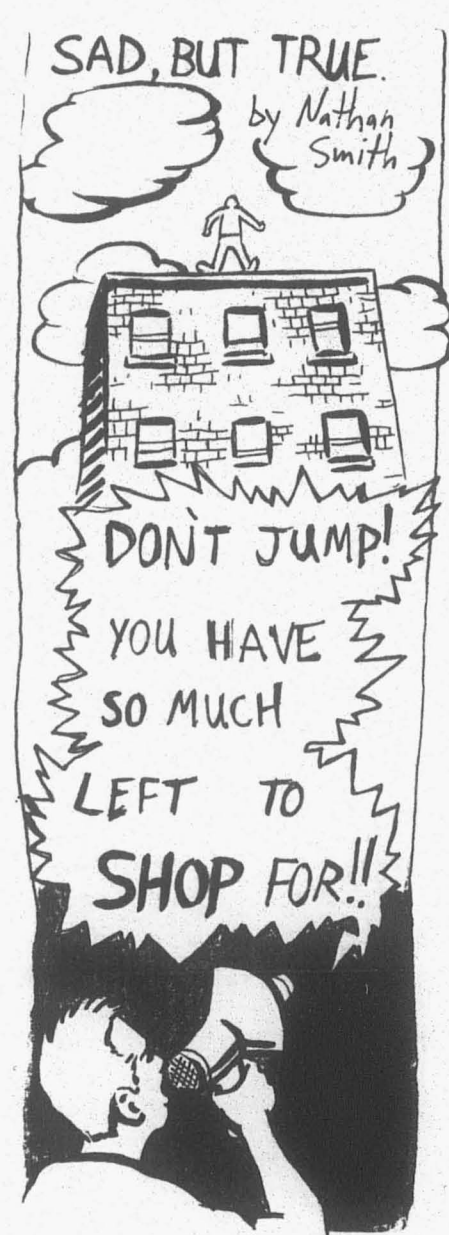 SAD, BUT TRUE.
by Nathan
Smith
DON'T JUMP!
YOU HAVE
SO MUCH
LEFT TO
SHOP FOR!!